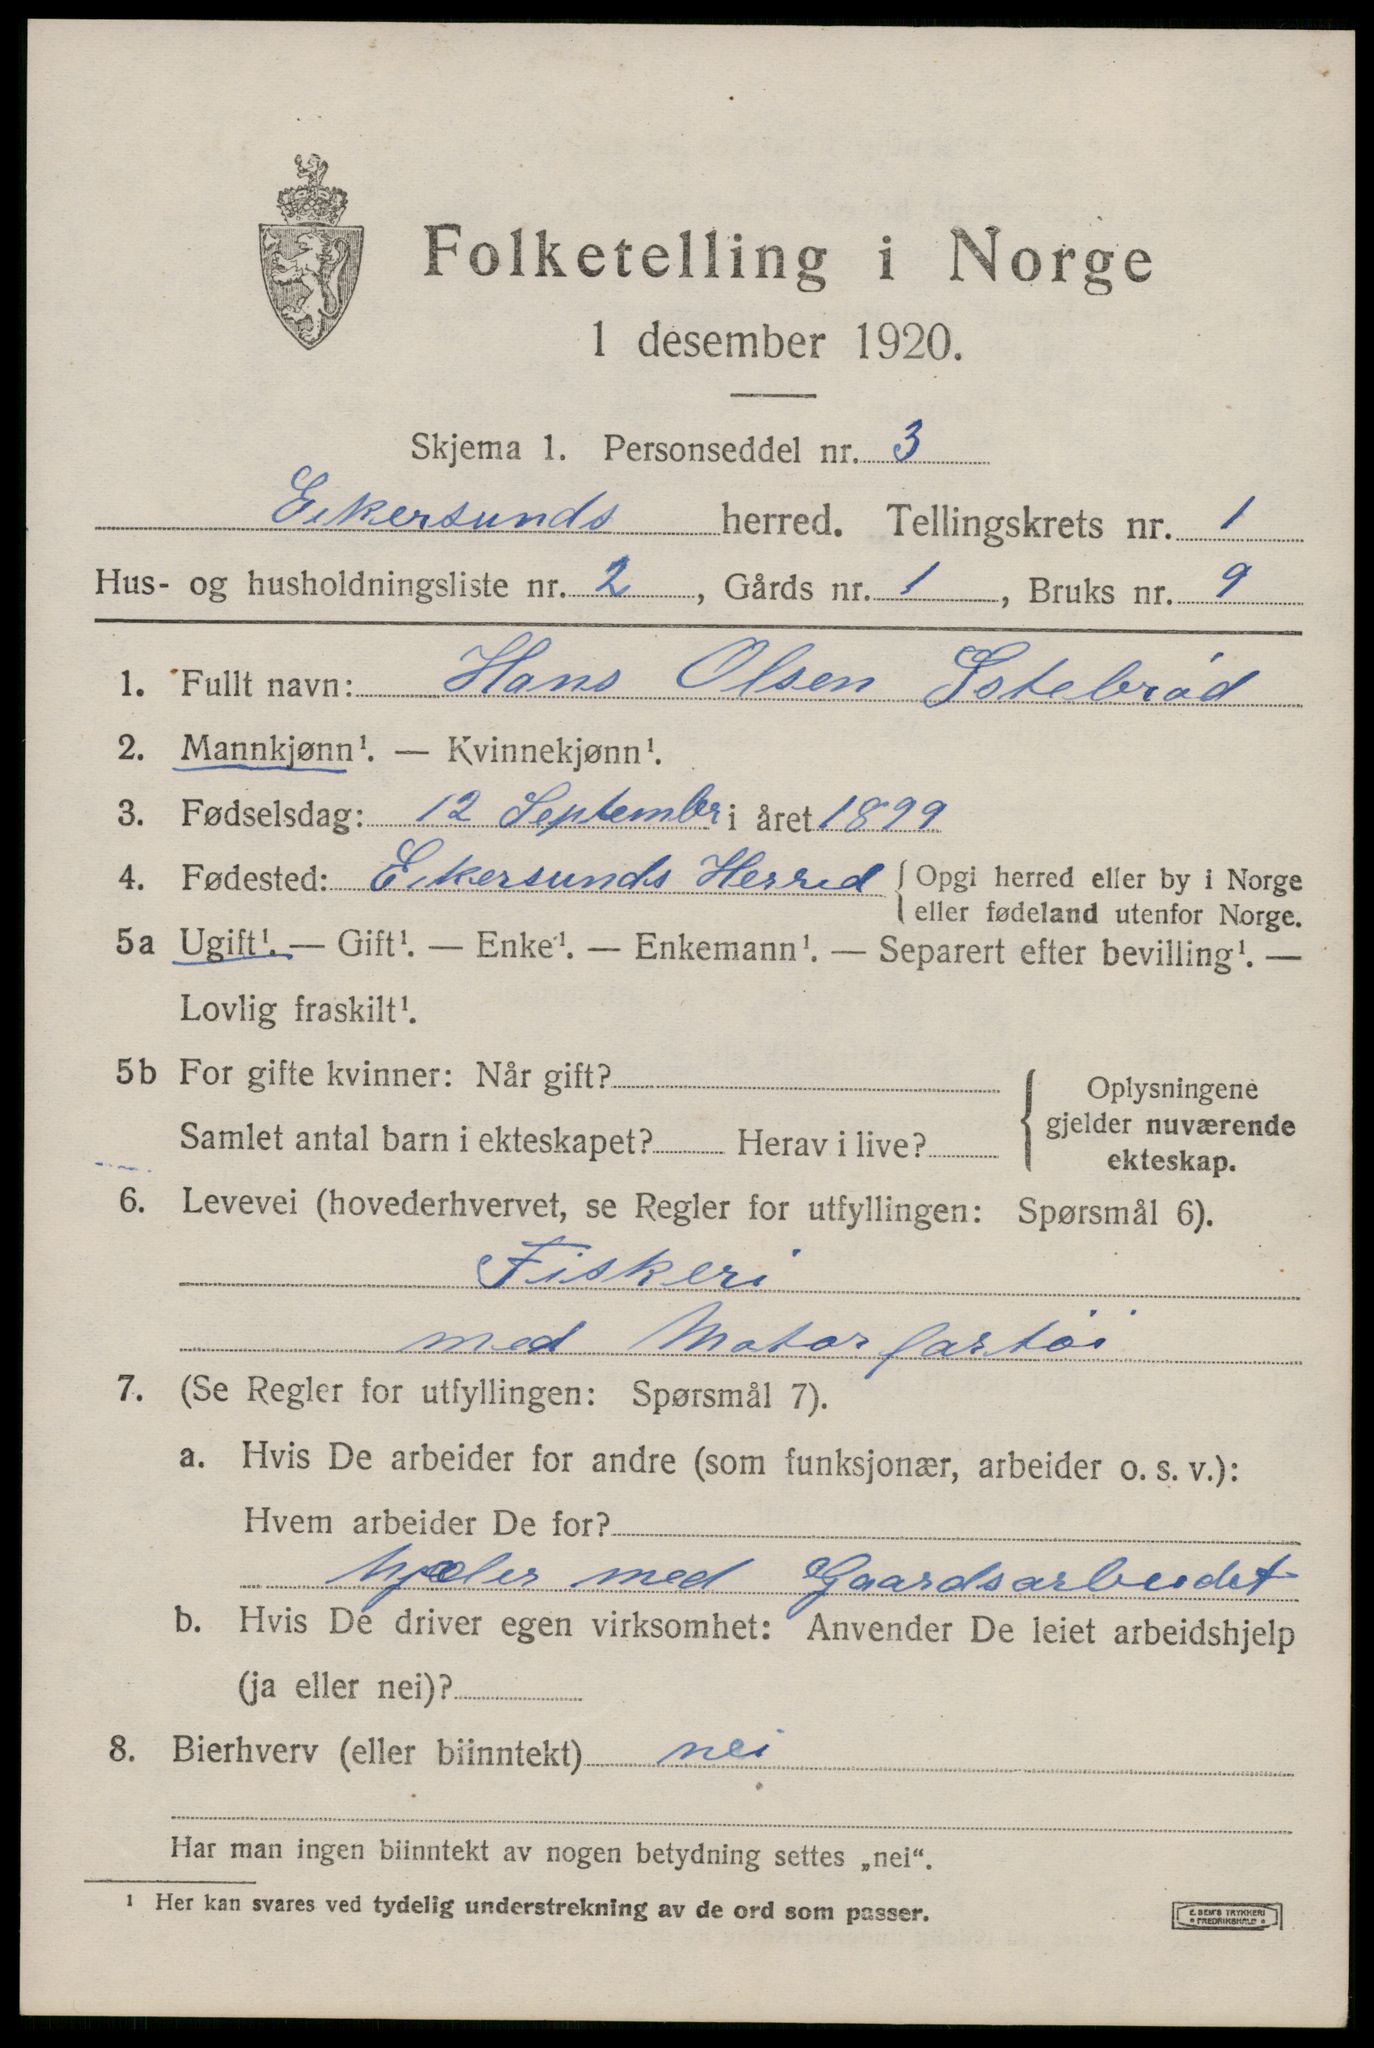 Folketelling i Norge
1 desember 1920.
Skjema 1. Personseddel nr. 3
Eikersunds herred. Tellingskrets nr. 1
Hus- og husholdningsliste nr. 2, Gårds nr. 1, Bruks nr. 9
1. Fullt navn: Hans Olsen Ystebröd
2. Mannkjønn¹. — Kvinnekjønn¹.
3. Fødselsdag: 12 Septembr i året 1899
4. Fødested: Eikersunds Herred { Opgi herred eller by i Norge
eller fødeland utenfor Norge.
5a Ugift¹. — Gift¹. — Enke¹. — Enkemann¹. — Separert efter bevilling¹. —
Lovlig fraskilt¹.
5b For gifte kvinner: Når gift?
Samlet antal barn i ekteskapet? Herav i live?
Oplysningene
gjelder nuværende
ekteskap.
6. Levevei (hovederhvervet, se Regler for utfyllingen: Spørsmål 6).
Fiskeri
med Motorfartöi
7. (Se Regler for utfyllingen: Spørsmål 7).
a. Hvis De arbeider for andre (som funksjonær, arbeider o. s. v.):
Hvem arbeider De for?
med Gaardsarbeidet
b. Hvis De driver egen virksomhet: Anvender De leiet arbeidshjelp
(ja eller nei)?
8. Bierhverv (eller biinntekt) nei
Har man ingen biinntekt av nogen betydning settes „nei“.
¹ Her kan svares ved tydelig understrekning av de ord som passer.
E. SEM'S TRYKKERI
FREDRIKSHALD